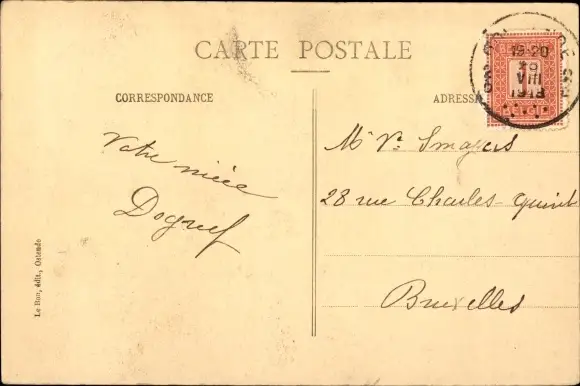 CARTE POSTALE
CORRESPONDANCE
ADRESSE
19-20
VIII
1
Votre nièce
Mr Vr Smayers
28 rue Charles-Quint
Bruxelles
Le Bon, édit., Ostende